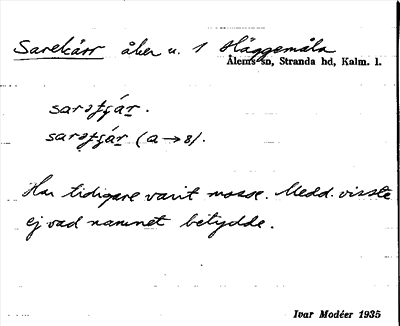 Sarekärr åker u. 1 Häggemåla
Ålems sn, Stranda hd, Kalm. l.
sarət̯ʃár.
sarət̯ʃár (a → 8).
Har tidigare varit mosse. Medd. visste
ej vad namnet betydde.
Ivar Modéer 1935